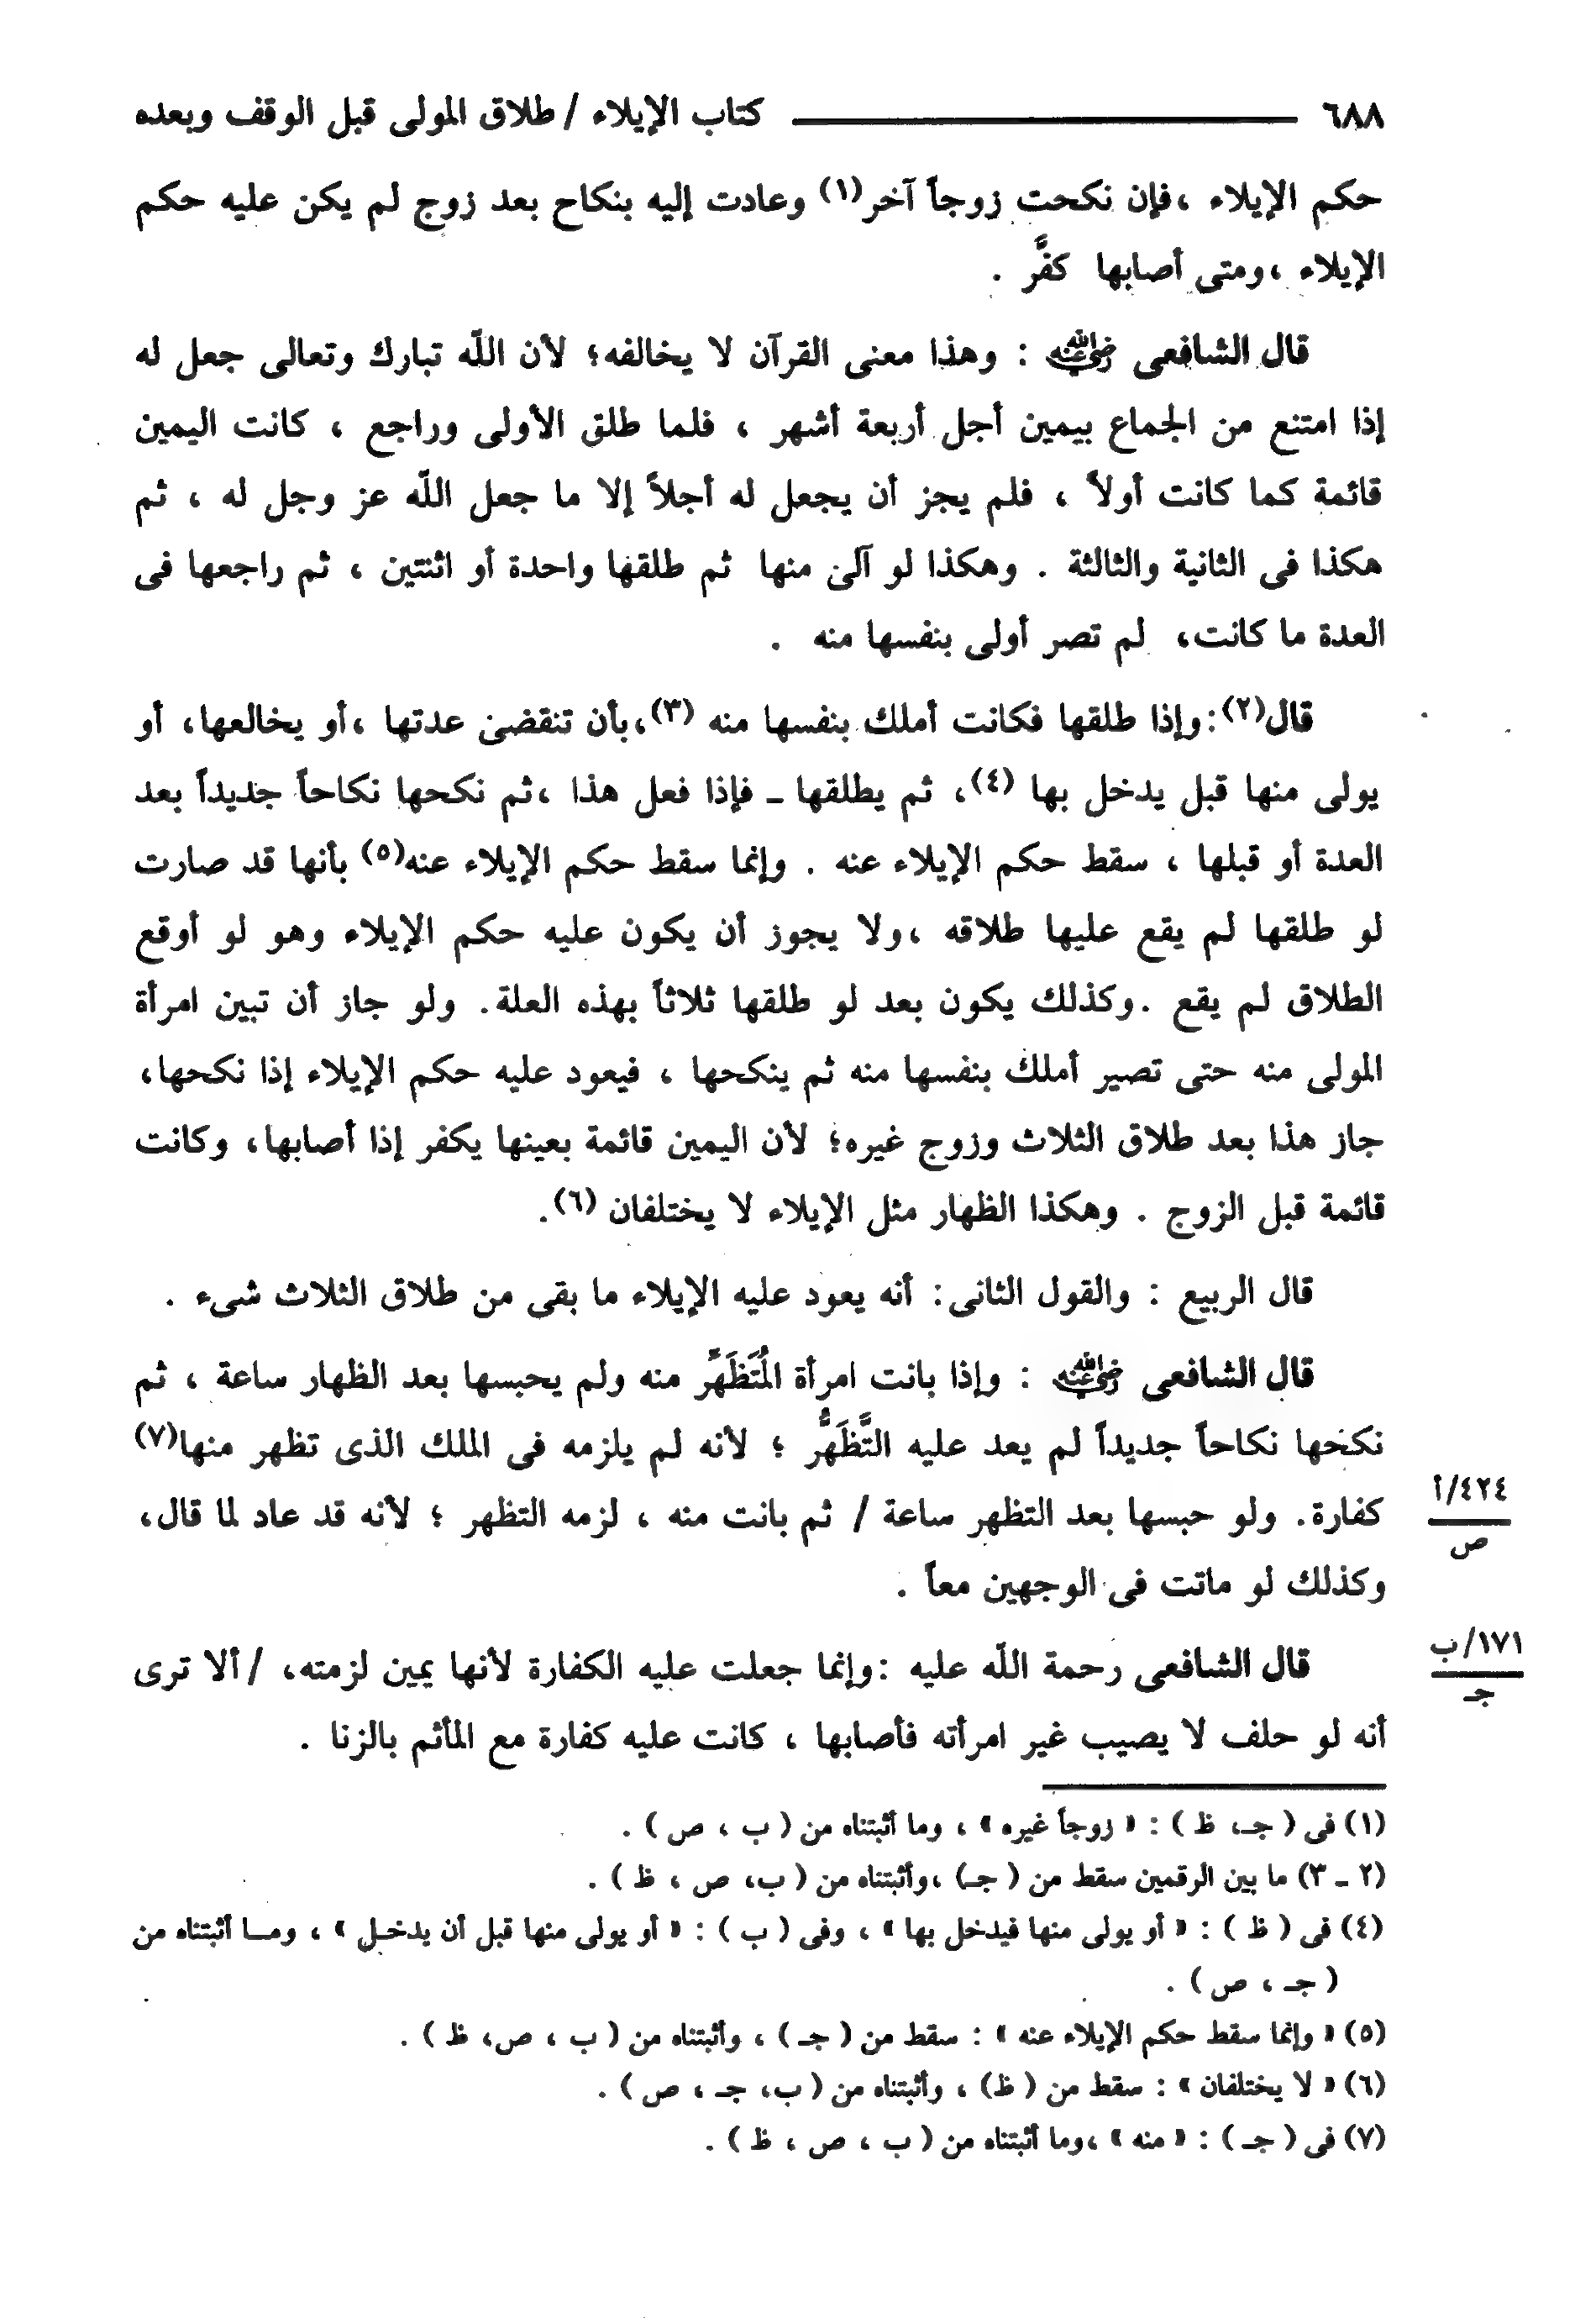 ٦٨٨ ــــــــــــــــ كتاب الإيلاء / طلاق المولى قبل الوقف وبعده
حكم الإيلاء ،فإن نكحت زوجاً آخر(١) وعادت إليه بنكاح بعد زوج لم يكن عليه حكم
الإيلاء ،ومتى أصابها كفَّر .
قال الشافعى رضي الله عنه : وهذا معنى القرآن لا يخالفه؛ لأن اللّه تبارك وتعالى جعل له
إذا امتنع من الجماع بيمين أجل أربعة أشهر ، فلما طلق الأولى وراجع ، كانت اليمين
قائمة كما كانت أولاً ، فلم يجز أن يجعل له أجلاً إلا ما جعل اللّه عز وجل له ، ثم
هكذا فى الثانية والثالثة . وهكذا لو آلى منها ثم طلقها واحدة أو اثنتين ، ثم راجعها فى
العدة ما كانت، لم تصر أولى بنفسها منه .
قال(٢):وإذا طلقها فكانت أملك بنفسها منه (٣)،بأن تنقضى عدتها ،أو يخالعها، أو
يولى منها قبل يدخل بها (٤)، ثم يطلقها ـ فإذا فعل هذا ،ثم نكحها نكاحاً جديداً بعد
العدة أو قبلها ، سقط حكم الإيلاء عنه . وإنما سقط حكم الإيلاء عنه(٥) بأنها قد صارت
لو طلقها لم يقع عليها طلاقه ،ولا يجوز أن يكون عليه حكم الإيلاء وهو لو أوقع
الطلاق لم يقع .وكذلك يكون بعد لو طلقها ثلاثاً بهذه العلة. ولو جاز أن تبين امرأة
المولى منه حتى تصير أملك بنفسها منه ثم ينكحها ، فيعود عليه حكم الإيلاء إذا نكحها،
جاز هذا بعد طلاق الثلاث وزوج غيره؛ لأن اليمين قائمة بعينها يكفر إذا أصابها، وكانت
قائمة قبل الزوج . وهكذا الظهار مثل الإيلاء لا يختلفان (٦).
قال الربيع : والقول الثانى: أنه يعود عليه الإيلاء ما بقى من طلاق الثلاث شىء .
قال الشافعى رضي الله عنه : وإذا بانت امرأة المُتَظَهِّر منه ولم يحبسها بعد الظهار ساعة ، ثم
نكحها نكاحاً جديداً لم يعد عليه التَّظَهُّر ؛ لأنه لم يلزمه فى الملك الذى تظهر منها(٧)
كفارة. ولو حبسها بعد التظهر ساعة / ثم بانت منه ، لزمه التظهر ؛ لأنه قد عاد لما قال،
٤٢٤/أ
ص
وكذلك لو ماتت فى الوجهين معاً .
قال الشافعى رحمة اللّه عليه :وإنما جعلت عليه الكفارة لأنها يمين لزمته، /ألا ترى
١٧١/ب
جـ
أنه لو حلف لا يصيب غير امرأته فأصابها ، كانت عليه كفارة مع المأثم بالزنا .
(١) فى ( جـ، ظ ) : « زوجاً غيره » ، وما أثبتناه من ( ب ، ص ) .
(٢ ـ ٣) ما بين الرقمين سقط من ( جـ) ،وأثبتناه من ( ب، ص ، ظ ) .
(٤) فى ( ظ ) : « أو يولى منها فيدخل بها » ، وفى ( ب ) : « أو يولى منها قبل أن يدخـل » ، ومـا أثبتناه من
( جـ ، ص ) .
(٥) « وإنما سقط حكم الإيلاء عنه » : سقط من ( جـ ) ، وأثبتناه من ( ب ، ص، ظ ) .
(٦) « لا يختلفان » : سقط من ( ظ) ، وأثبتناه من ( ب، جـ ، ص ) .
(٧) فى ( جـ ) : « منه » ،وما أثبتناه من ( ب ، ص ، ظ ) .